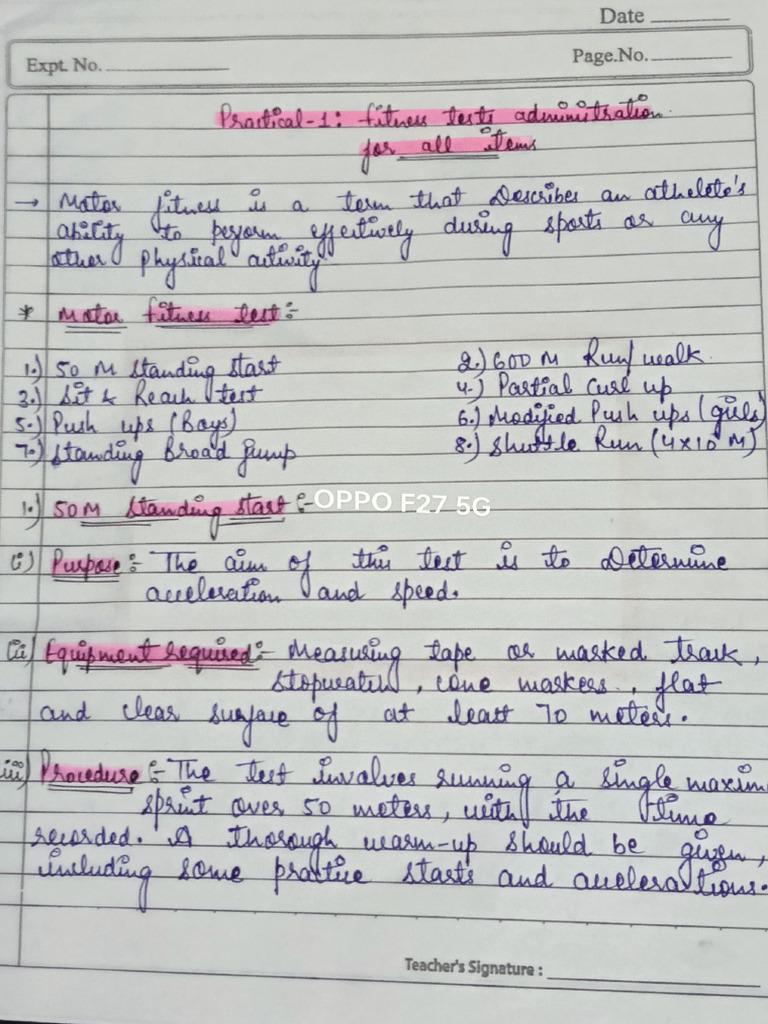 Date
Expt. No.
Page.No.
Practical-1: fitness tests administration
for all items
→ Motor fitness is a term that Describes an athelete's
ability to perform effectively during sports or any
other physical activity
* Motor fitness test:-
1.) 50 M Standing Start 2.) 600 M Run/walk
3.) Sit & Reach test 4.) Partial Curl up
5.) Push ups (Boys) 6.) Modified Push ups (girls)
7.) Standing Broad Jump 8.) Shuttle Run (4x10 M)
1.) 50M Standing Start :-
OPPO F27 5G
(i) Purpose:- The aim of this test is to Determine
acceleration and speed.
(ii) Equipment required:- Measuring tape or marked track,
stopwatch, cone markers, flat
and clear surface of at least 70 meters.
(iii) Procedure:- The test involves running a single maxim
sprint over 50 meters, with the time
recorded. A thorough warm-up should be given,
including some practice starts and accelerations.
Teacher's Signature :